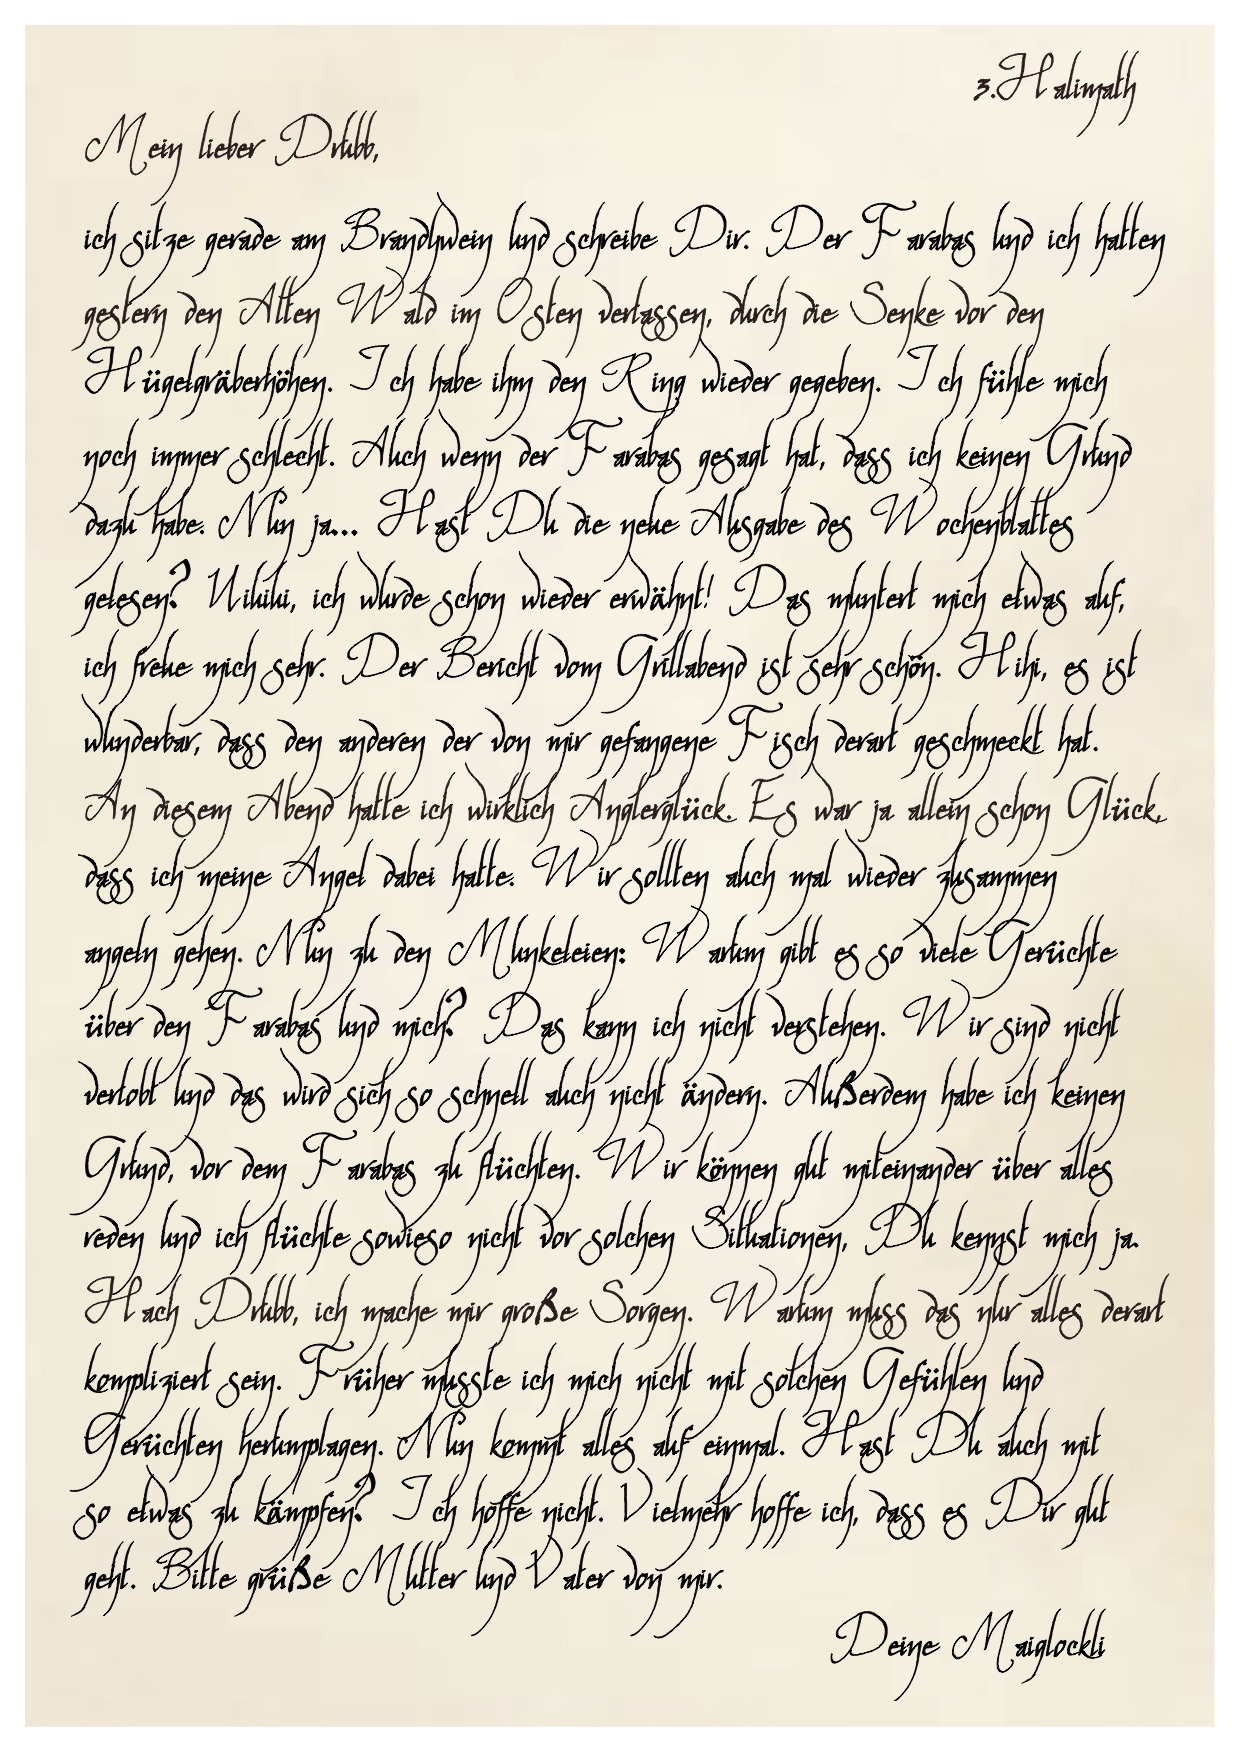 3. Halimath
Mein lieber Drubb,
ich sitze gerade am Brandywein und schreibe Dir. Der Farabas und ich hatten
gestern den Alten Wald im Osten verlassen, durch die Senke vor den
Hügelgräberhöhen. Ich habe ihm den Ring wieder gegeben. Ich fühle mich
noch immer schlecht. Auch wenn der Farabas gesagt hat, dass ich keinen Grund
dazu habe. Nun ja... Hast Du die neue Ausgabe des Wochenblattes
gelesen? Uiuiui, ich wurde schon wieder erwähnt! Das muntert mich etwas auf,
ich freue mich sehr. Der Bericht vom Grillabend ist sehr schön. Hihi, es ist
wunderbar, dass den anderen der von mir gefangene Fisch derart geschmeckt hat.
An diesem Abend hatte ich wirklich Anglerglück. Es war ja allein schon Glück,
dass ich meine Angel dabei hatte. Wir sollten auch mal wieder zusammen
angeln gehen. Nun zu den Munkeleien: Warum gibt es so viele Gerüchte
über den Farabas und mich? Das kann ich nicht verstehen. Wir sind nicht
verlobt und das wird sich so schnell auch nicht ändern. Außerdem habe ich keinen
Grund, vor dem Farabas zu flüchten. Wir können gut miteinander über alles
reden und ich flüchte sowieso nicht vor solchen Situationen, Du kennst mich ja.
Hach Drubb, ich mache mir große Sorgen. Warum muss das nur alles derart
kompliziert sein. Früher musste ich mich nicht mit solchen Gefühlen und
Gerüchten herumplagen. Nun kommt alles auf einmal. Hast Du auch mit
so etwas zu kämpfen? Ich hoffe nicht. Vielmehr hoffe ich, dass es Dir gut
geht. Bitte grüße Mutter und Vater von mir.
Deine Maiglockli